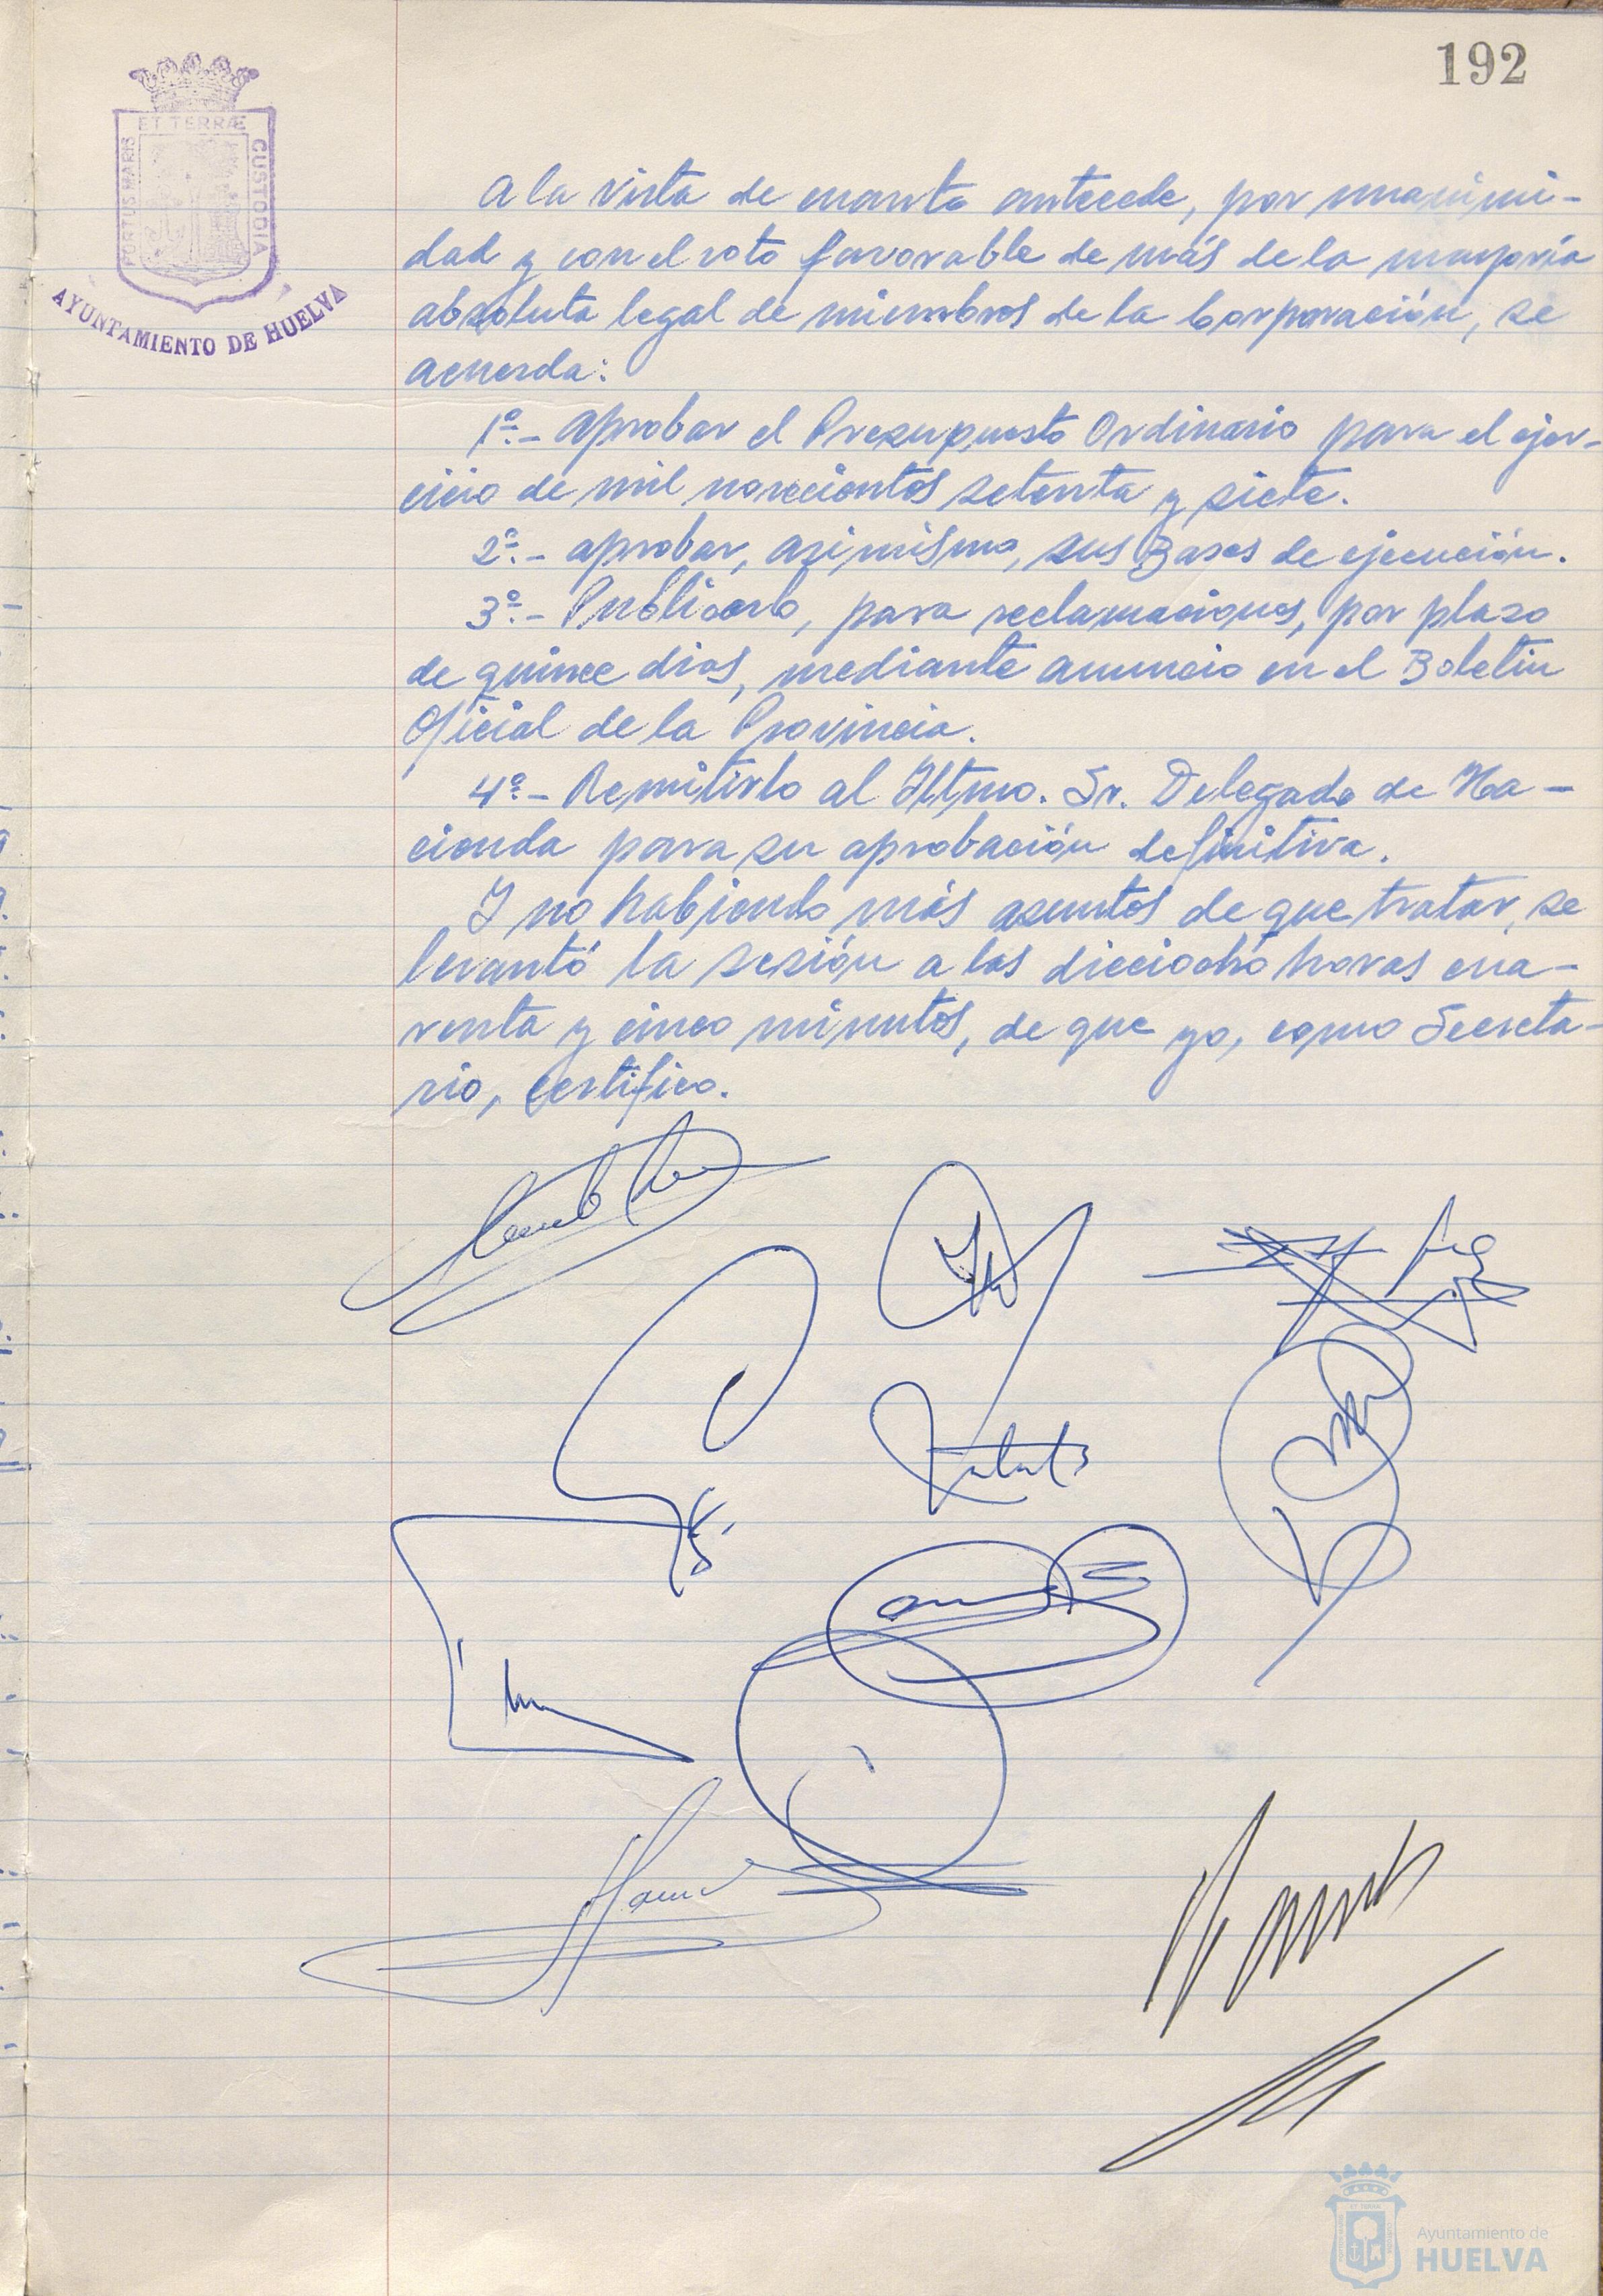 192
ET TERRÆ
PORTUS MARIS
CUSTODIA
AYUNTAMIENTO DE HUELVA
A la vista de cuanto antecede, por unanimi-
dad y con el voto favorable de más de la mayoría
absoluta legal de miembros de la Corporación, se
acuerda:
1º.- Aprobar el Presupuesto Ordinario para el ejer-
cicio de mil novecientos setenta y siete.
2º.- Aprobar, asimismo, sus Bases de ejecución.
3º.- Publicarlo, para reclamaciones, por plazo
de quince dias, mediante anuncio en el Boletin
Oficial de la Provincia.
4º.- Remitirlo al Iltmo. Sr. Delegado de Ha-
cienda para su aprobación definitiva.
Y no habiendo más asuntos de que tratar, se
levantó la sesión a las dieciocho horas cua-
renta y cinco minutos, de que yo, como Secreta-
rio, certifico.
Ayuntamiento de
HUELVA